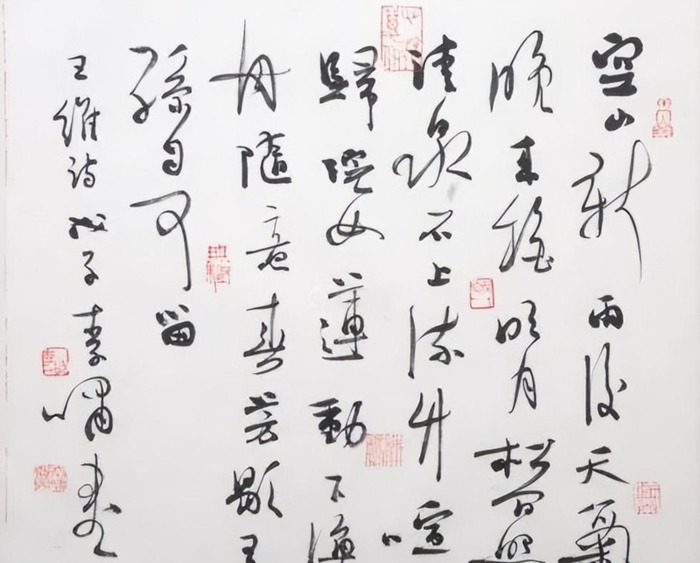 空山新雨後天氣
晚来秋明月松間照
清泉石上流竹喧
歸浣女蓮動下漁
舟隨意春芳歇王
孫自可留
王維詩戊子李嘯書